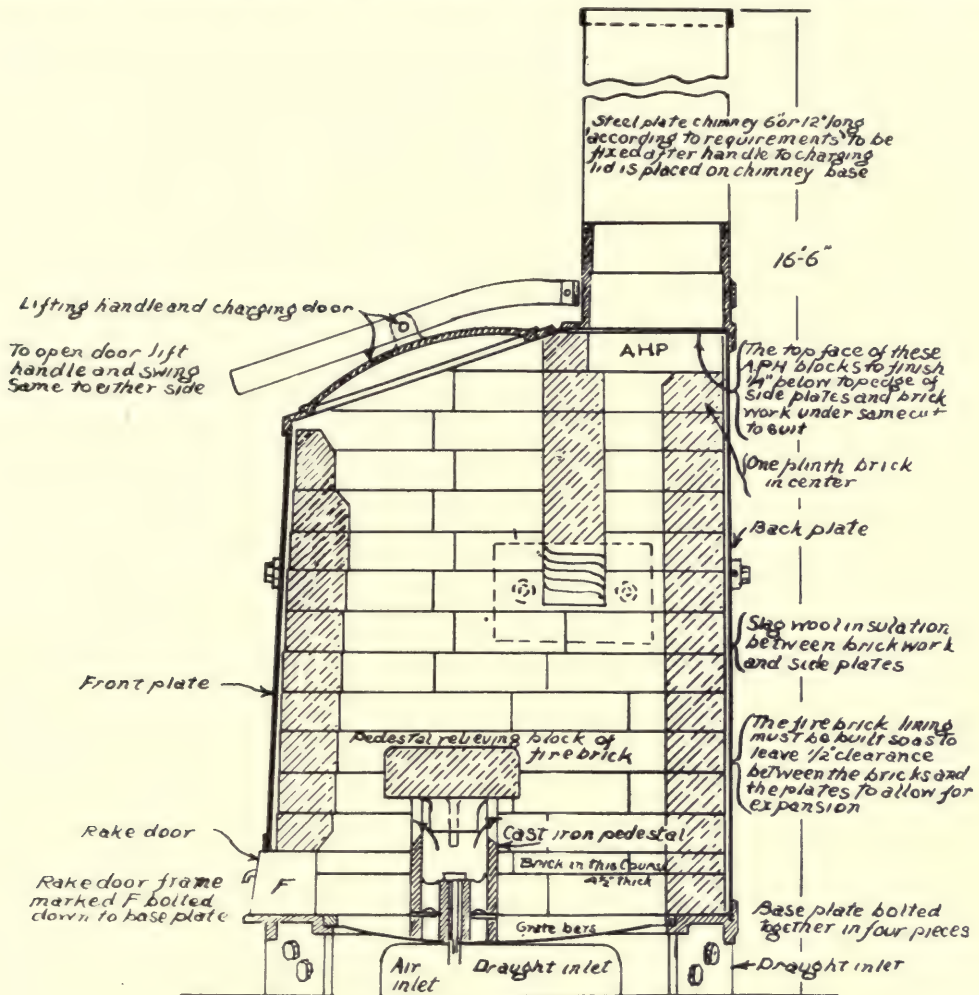 Steel plate chimney 6" or 12" long
according to requirements to be
fixed after handle to charging
lid is placed on chimney base
16'-6"
Lifting handle and charging door
To open door lift
handle and swing
Same to either side
AHP
The top face of these
APH blocks to finish
1/4" below top edge of
side plates and brick
work under same cut
to suit
One plinth brick
in center
Back plate
Slag wool insulation
between brickwork
and side plates
Front plate
The fire brick lining
must be built so as to
leave 1/2" clearance
between the bricks and
the plates to allow for
expansion
Pedestal relieving block of
fire brick
Rake door
Cast iron pedestal
Brick in this Course
4 1/2" thick
Rake door frame
marked F bolted
down to base plate
F
Grate bars
Base plate bolted
together in four pieces
Air
inlet
Draught inlet
Draught inlet